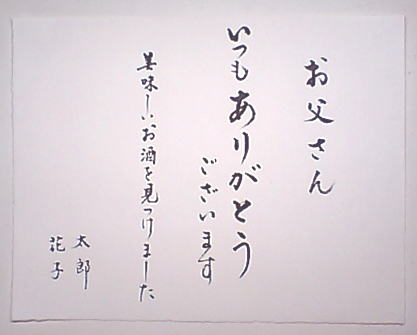 お父さん
いつもありがとう
ございます
美味しいお酒を見つけました
太郎
花子